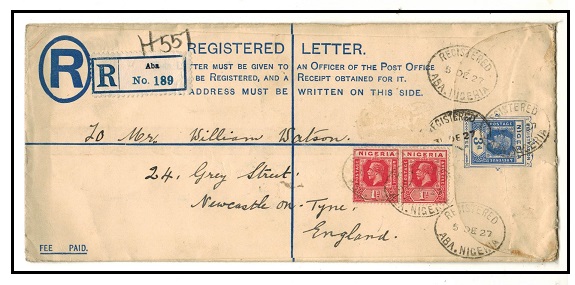 H551
REGISTERED LETTER.
R
R
Aba
No. 189
LETTER MUST BE GIVEN TO AN OFFICER OF THE POST OFFICE
TO BE REGISTERED, AND A RECEIPT OBTAINED FOR IT.
ADDRESS MUST BE WRITTEN ON THIS SIDE.
REGISTERED
5 DE 27
ABA.NIGERIA
To Mr. William Watson.
24, Grey Street.
Newcastle on-Tyne,
England.
NIGERIA
1D
NIGERIA
1D
REGISTERED
DE 27
NIGERIA
REGISTERED
5 DE 27
ABA.NIGERIA
FEE PAID.